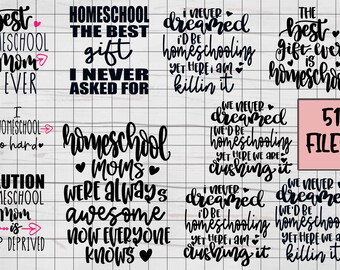 best
HOMESCHOOL
mom
EVER
HOMESCHOOL
THE BEST
gift
I NEVER
ASKED FOR
i never
dreamed
i'd be
homeschooling
yet here i am
killin it
THE
best
gift ever
is
homeschool
I
HOMESCHOOL
so hard
homeschool
moms
were always
awesome
now everyone
knows
we never
dreamed
we'd be
homeschooling
yet here we are
crushing it
51
FILES
CAUTION
HOMESCHOOL
mom
IS
SLEEP DEPRIVED
i never
dreamed
i'd be
homeschooling
yet here i am
crushing it
we never
dreamed
we'd be
homeschooling
yet here we are
killin it